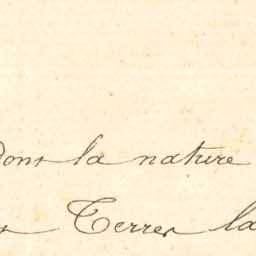 dans la nature
Terres la